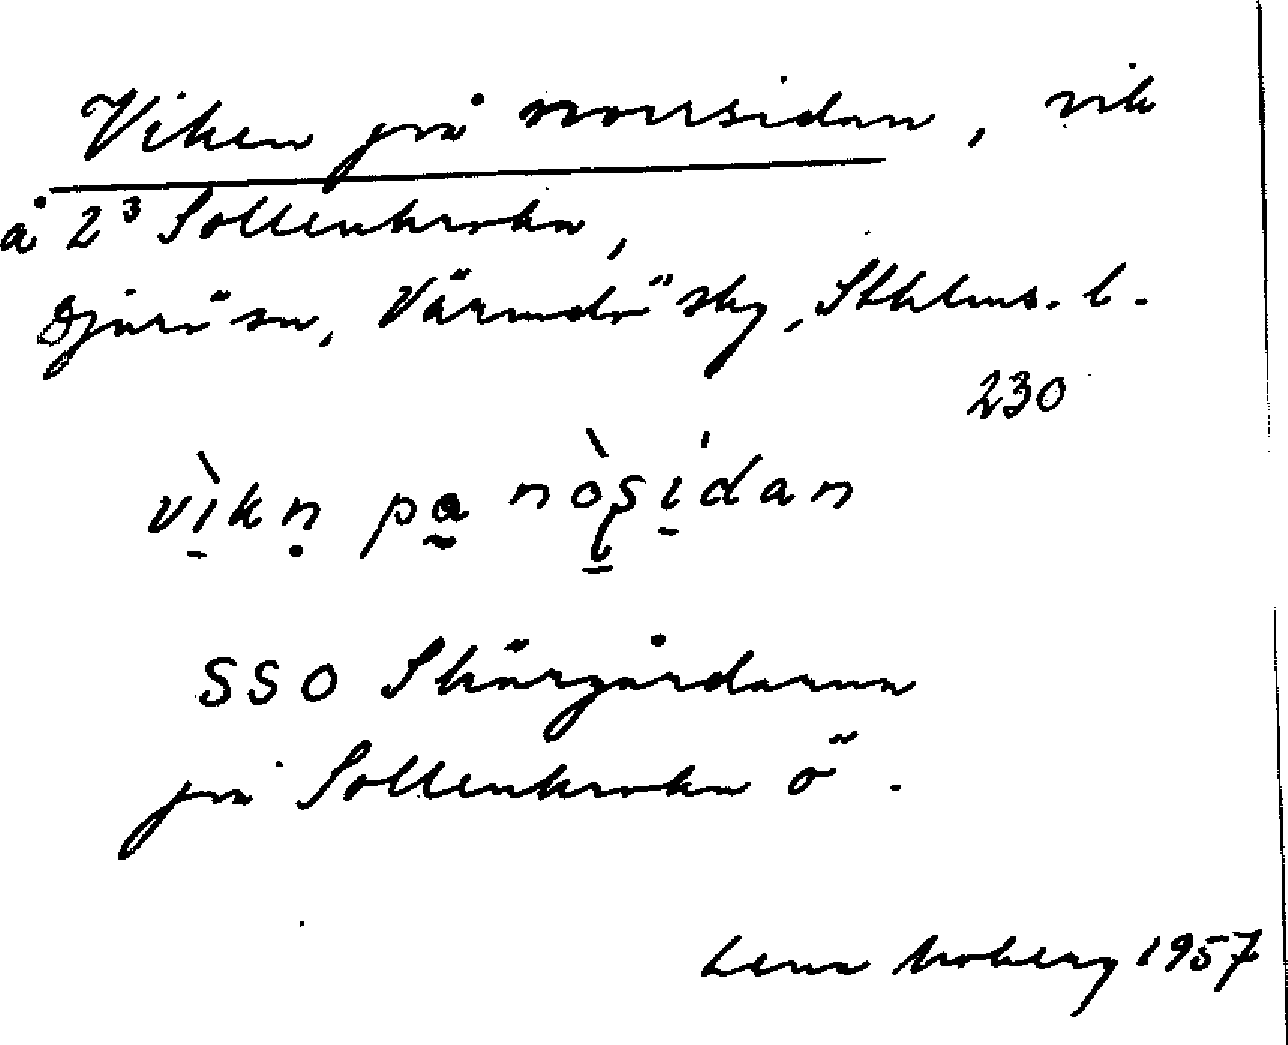 Viken på norrsidan, vik
å 2³ Sollenkroka,
Djurö sn, Värmdö sky, Sthlms. l.
230
vìkṇ pa nòsidan
SSO Skärgårdarna
på Sollenkroka ö.
Lena Moberg 1957